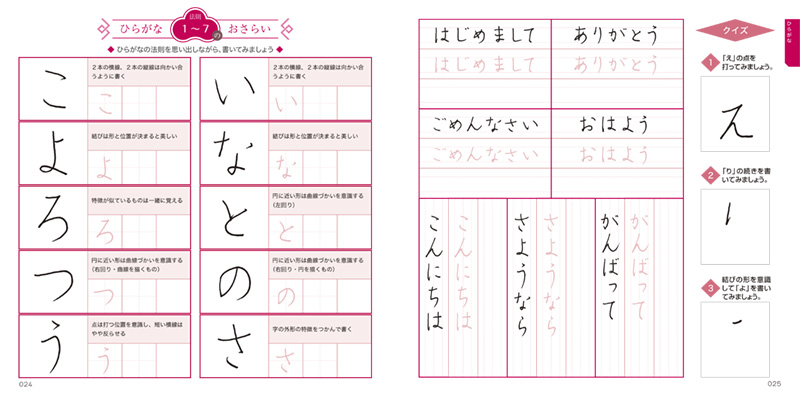 ひらがな 法則1〜7の おさらい
◆ ひらがなの法則を思い出しながら、書いてみましょう ◆
こ
2本の横線、2本の縦線は向かい合うように書く
こ
い
2本の横線、2本の縦線は向かい合うように書く
い
よ
結びは形と位置が決まると美しい
よ
な
結びは形と位置が決まると美しい
な
ろ
特徴が似ているものは一緒に覚える
ろ
と
円に近い形は曲線づかいを意識する
(左回り)
と
つ
円に近い形は曲線づかいを意識する
(右回り・曲線を描くもの)
つ
の
円に近い形は曲線づかいを意識する
(右回り・円を描くもの)
の
う
点は打つ位置を意識し、短い横線は
やや反らせる
う
さ
字の外形の特徴をつかんで書く
さ
024
はじめまして
はじめまして
ありがとう
ありがとう
ごめんなさい
ごめんなさい
おはよう
おはよう
がんばって
がんばって
さようなら
さようなら
こんにちは
こんにちは
ひらがな
クイズ
1 「え」の点を
打ってみましょう。
2 「り」の続きを書
いてみましょう。
3 結びの形を意識
して「よ」を書い
てみましょう。
025